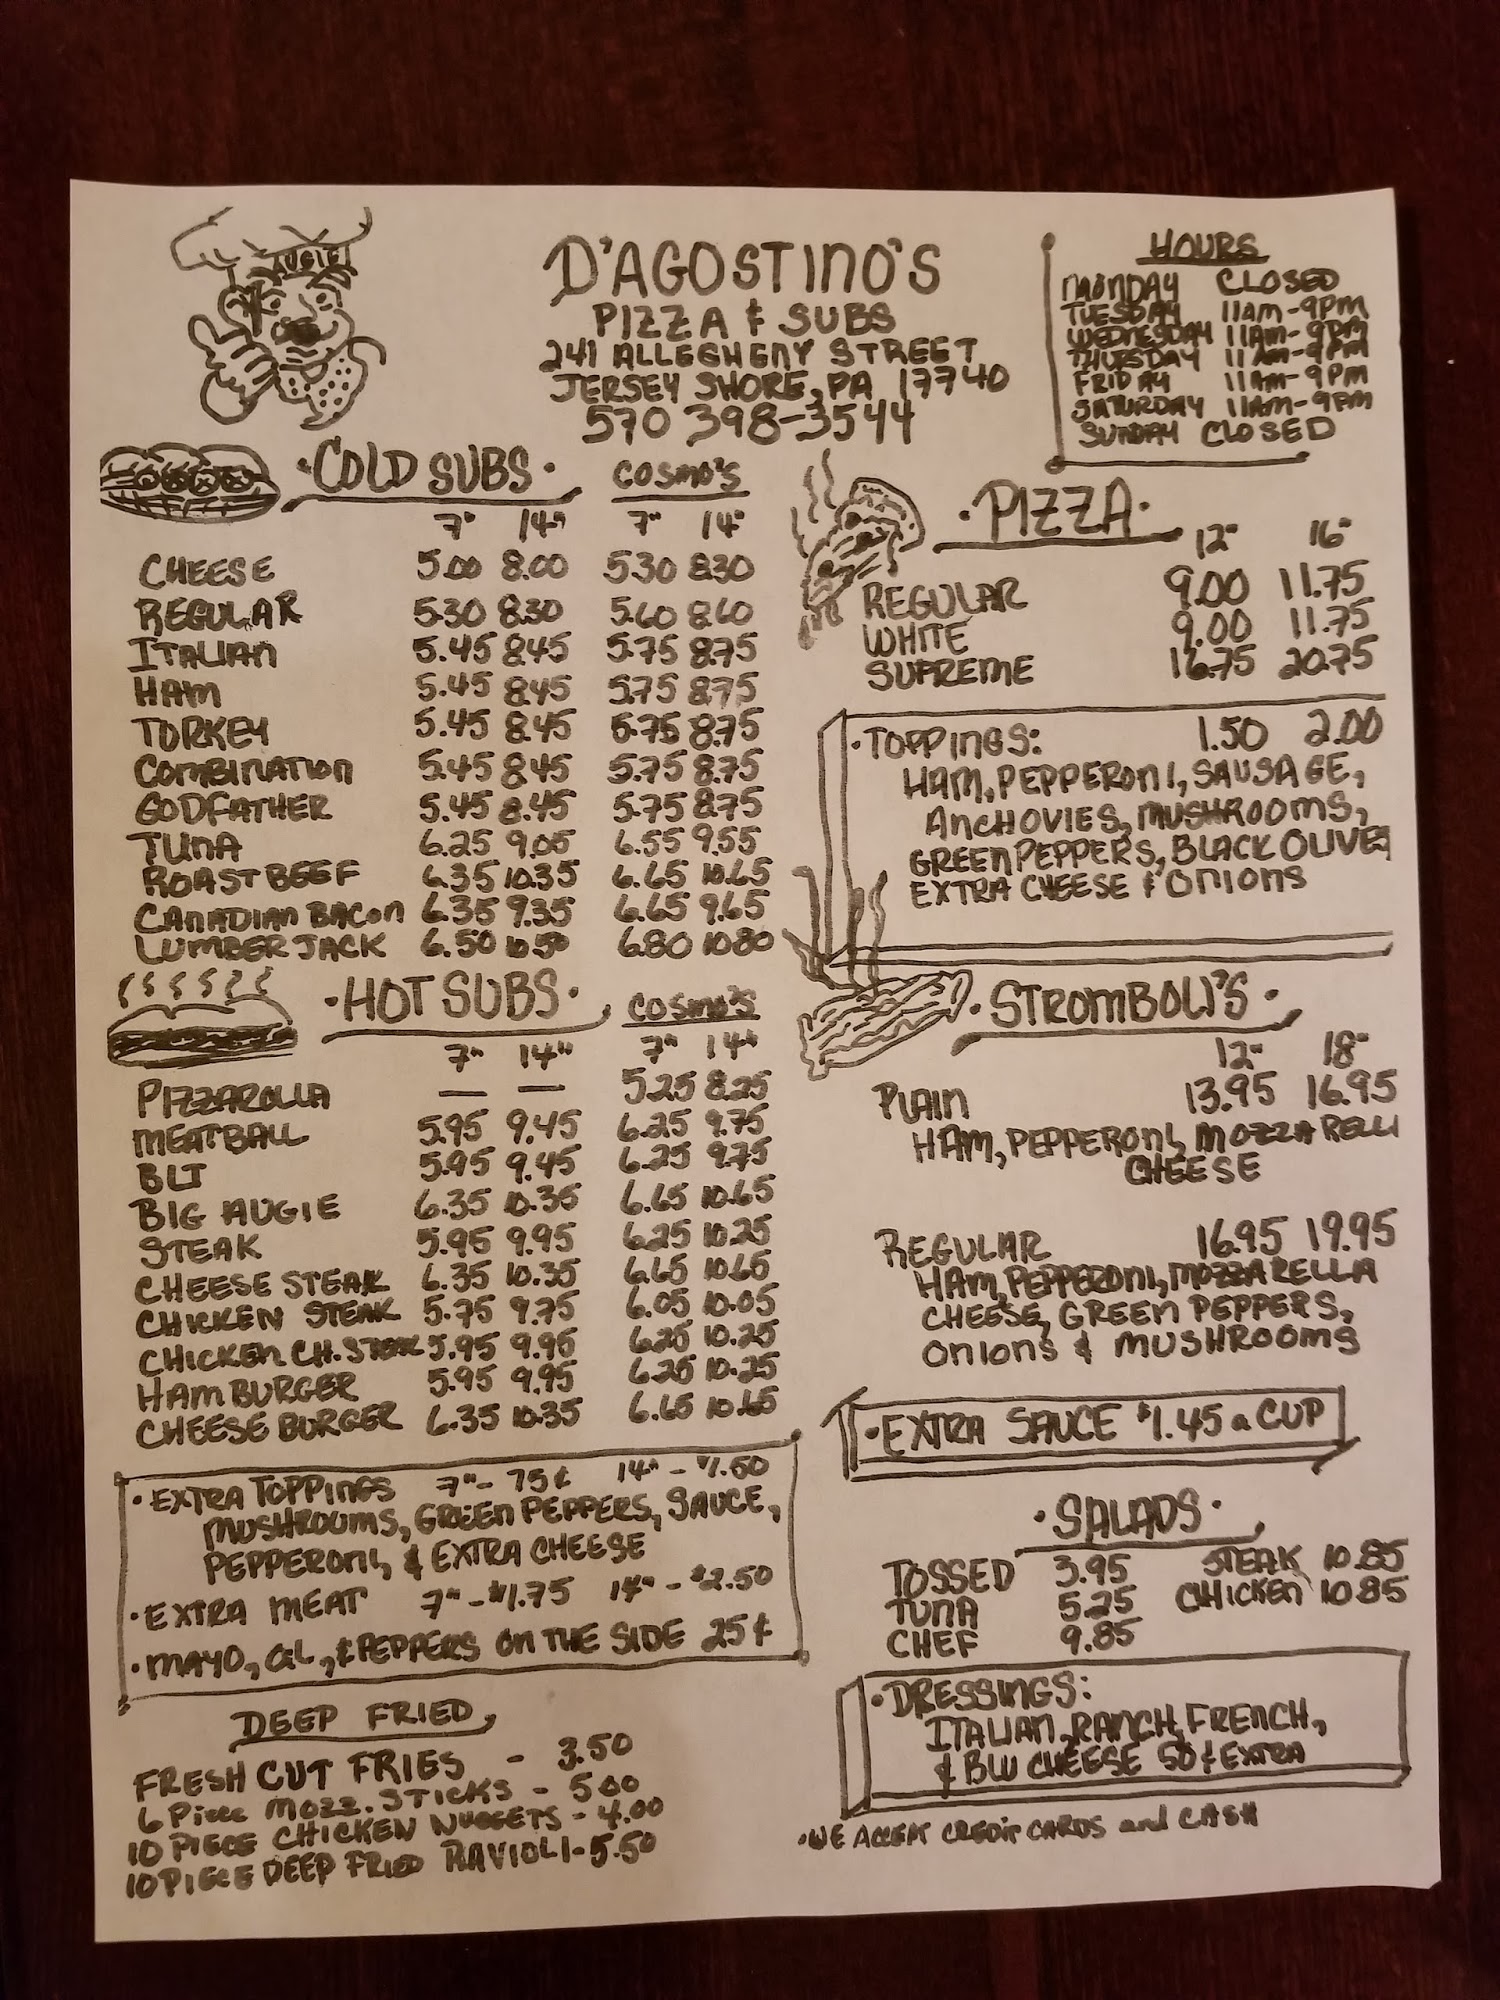 AUGIE
D'AGOSTINO'S
PIZZA & SUBS
241 ALLEGHENY STREET
JERSEY SHORE, PA 17740
570 398-3544
HOURS
MONDAY CLOSED
TUESDAY 11AM-9PM
WEDNESDAY 11AM-9PM
THURSDAY 11AM-9PM
FRIDAY 11AM-9PM
SATURDAY 11AM-9PM
SUNDAY CLOSED
·COLD SUBS· COSMO'S
7" 14" 7" 14"
CHEESE 5.00 8.00 5.30 8.30
REGULAR 5.30 8.30 5.60 8.60
ITALIAN 5.45 8.45 5.75 8.75
HAM 5.45 8.45 5.75 8.75
TORKEY 5.45 8.45 5.75 8.75
COMBINATION 5.45 8.45 5.75 8.75
GODFATHER 5.45 8.45 5.75 8.75
TUNA 6.25 9.05 6.55 9.55
ROAST BEEF 6.35 10.35 6.65 10.65
CANADIAN BACON 6.35 9.35 6.65 9.65
LUMBER JACK 6.50 10.50 6.80 10.80
·HOT SUBS· COSMO'S
7" 14" 7" 14"
PIZZAROLLA — — 5.25 8.25
MEATBALL 5.95 9.45 6.25 9.75
BLT 5.95 9.45 6.25 9.75
BIG AUGIE 6.35 10.35 6.65 10.65
STEAK 5.95 9.95 6.25 10.25
CHEESE STEAK 6.35 10.35 6.65 10.65
CHICKEN STEAK 5.75 9.75 6.05 10.05
CHICKEN CH. STEAK 5.95 9.95 6.25 10.25
HAMBURGER 5.95 9.95 6.25 10.25
CHEESE BURGER 6.35 10.35 6.65 10.65
·EXTRA TOPPINGS 7"- 75¢ 14" - $1.50
MUSHROOMS, GREEN PEPPERS, SAUCE,
PEPPERONI, & EXTRA CHEESE
·EXTRA MEAT 7" - $1.75 14" - $2.50
·MAYO, OIL, & PEPPERS ON THE SIDE 25¢
DEEP FRIED
FRESH CUT FRIES - 3.50
6 PIECE MOZZ. STICKS - 5.00
10 PIECE CHICKEN NUGGETS - 4.00
10 PIECE DEEP FRIED RAVIOLI - 5.50
·PIZZA·
12" 16"
REGULAR 9.00 11.75
WHITE 9.00 11.75
SUPREME 16.75 20.75
·TOPPINGS: 1.50 2.00
HAM, PEPPERONI, SAUSAGE,
ANCHOVIES, MUSHROOMS,
GREEN PEPPERS, BLACK OLIVES
EXTRA CHEESE & ONIONS
·STROMBOLI'S·
12" 18"
PLAIN 13.95 16.95
HAM, PEPPERONI, MOZZARELLI
CHEESE
REGULAR 16.95 19.95
HAM, PEPPERONI, MOZZARELLA
CHEESE, GREEN PEPPERS,
ONIONS & MUSHROOMS
·EXTRA SAUCE $1.45 a CUP
·SALADS·
TOSSED 3.95 STEAK 10.85
TUNA 5.25 CHICKEN 10.85
CHEF 9.85
·DRESSINGS:
ITALIAN, RANCH, FRENCH,
& BLU CHEESE 50¢ EXTRA
·WE ACCEPT CREDIT CARDS and CASH